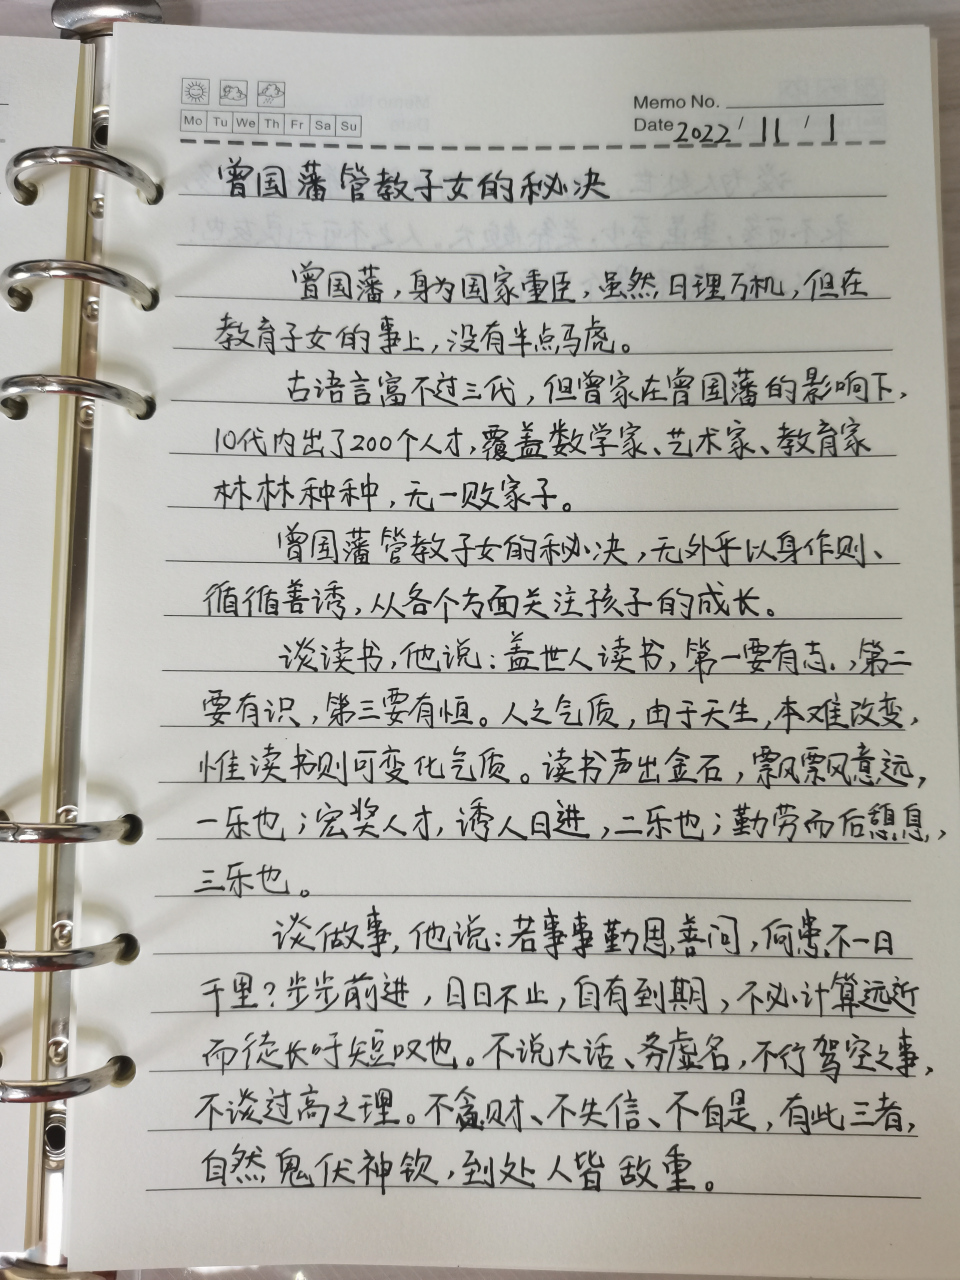 Memo No.
Mo Tu We Th Fr Sa Su
Date 2022 / 11 / 1
曾国藩管教子女的秘决
曾国藩,身为国家重臣,虽然日理万机,但在
教育子女的事上,没有半点马虎。
古语言富不过三代,但曾家在曾国藩的影响下,
10代内出了200个人才,覆盖数学家、艺术家、教育家
林林种种,无一败家子。
曾国藩管教子女的秘决,无外乎以身作则、
循循善诱,从各个方面关注孩子的成长。
谈读书,他说:盖世人读书,第一要有志,第二
要有识,第三要有恒。人之气质,由于天生,本难改变,
惟读书则可变化气质。读书声出金石,飘飘意远,
一乐也;宏奖人才,诱人日进,二乐也;勤劳而后憩息,
三乐也。
谈做事,他说:若事事勤思善问,何患不一日
千里?步步前进,日日不止,自有到期,不必计算远近
而徒长吁短叹也。不说大话、务虚名,不行驾空之事,
不谈过高之理。不贪财、不失信、不自是,有此三者,
自然鬼伏神钦,到处人皆敬重。